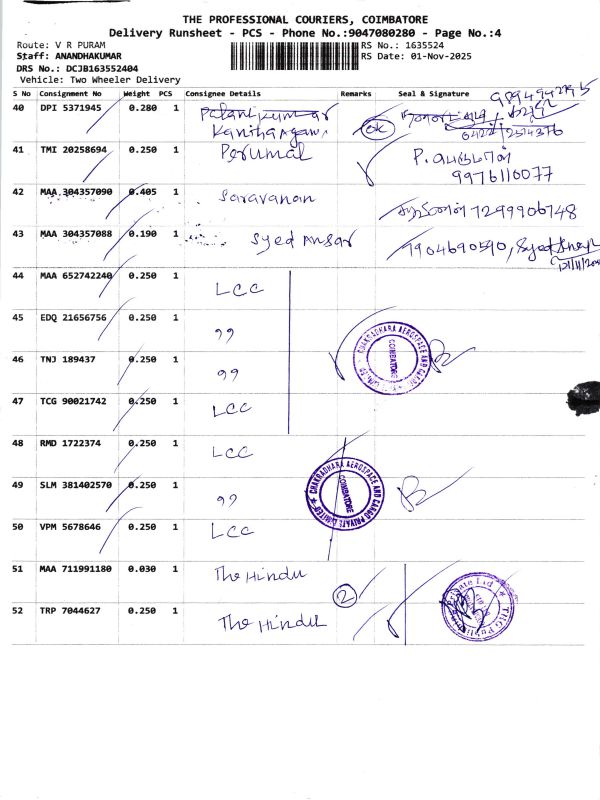 THE PROFESSIONAL COURIERS, COIMBATORE
Delivery Runsheet - PCS - Phone No.:9047080280 - Page No.:4
Route: V R PURAM
RS No.: 1635524
Staff: ANANDHAKUMAR
RS Date: 01-Nov-2025
DRS No.: DCJB163552404
Vehicle: Two Wheeler Delivery
S No Consignment No Weight PCS Consignee Details Remarks Seal & Signature
40 DPI 5371945 0.280 1 Palani kumar
ok
41 TMI 20258694 0.250 1 Perumal P. பெருமாள்
9976110077
42 MAA 304357090 0.405 1 Saravanan 7299906748
43 MAA 304357088 0.190 1 Syed Ansar 7904690590, Syed Ansar
44 MAA 652742240 0.250 1 LCC
45 EDQ 21656756 0.250 1 "
46 TNJ 189437 0.250 1 "
CHAKRADHARA AEROSPACE AND CARGO PRIVATE LIMITED
COIMBATORE
47 TCG 90021742 0.250 1 LCC
48 RMD 1722374 0.250 1 LCC
49 SLM 381402570 0.250 1 "
CHAKRADHARA AEROSPACE AND CARGO PRIVATE LIMITED
COIMBATORE
50 VPM 5678646 0.250 1 LCC
51 MAA 711991180 0.030 1 The Hindu
2
52 TRP 7044627 0.250 1 The Hindu